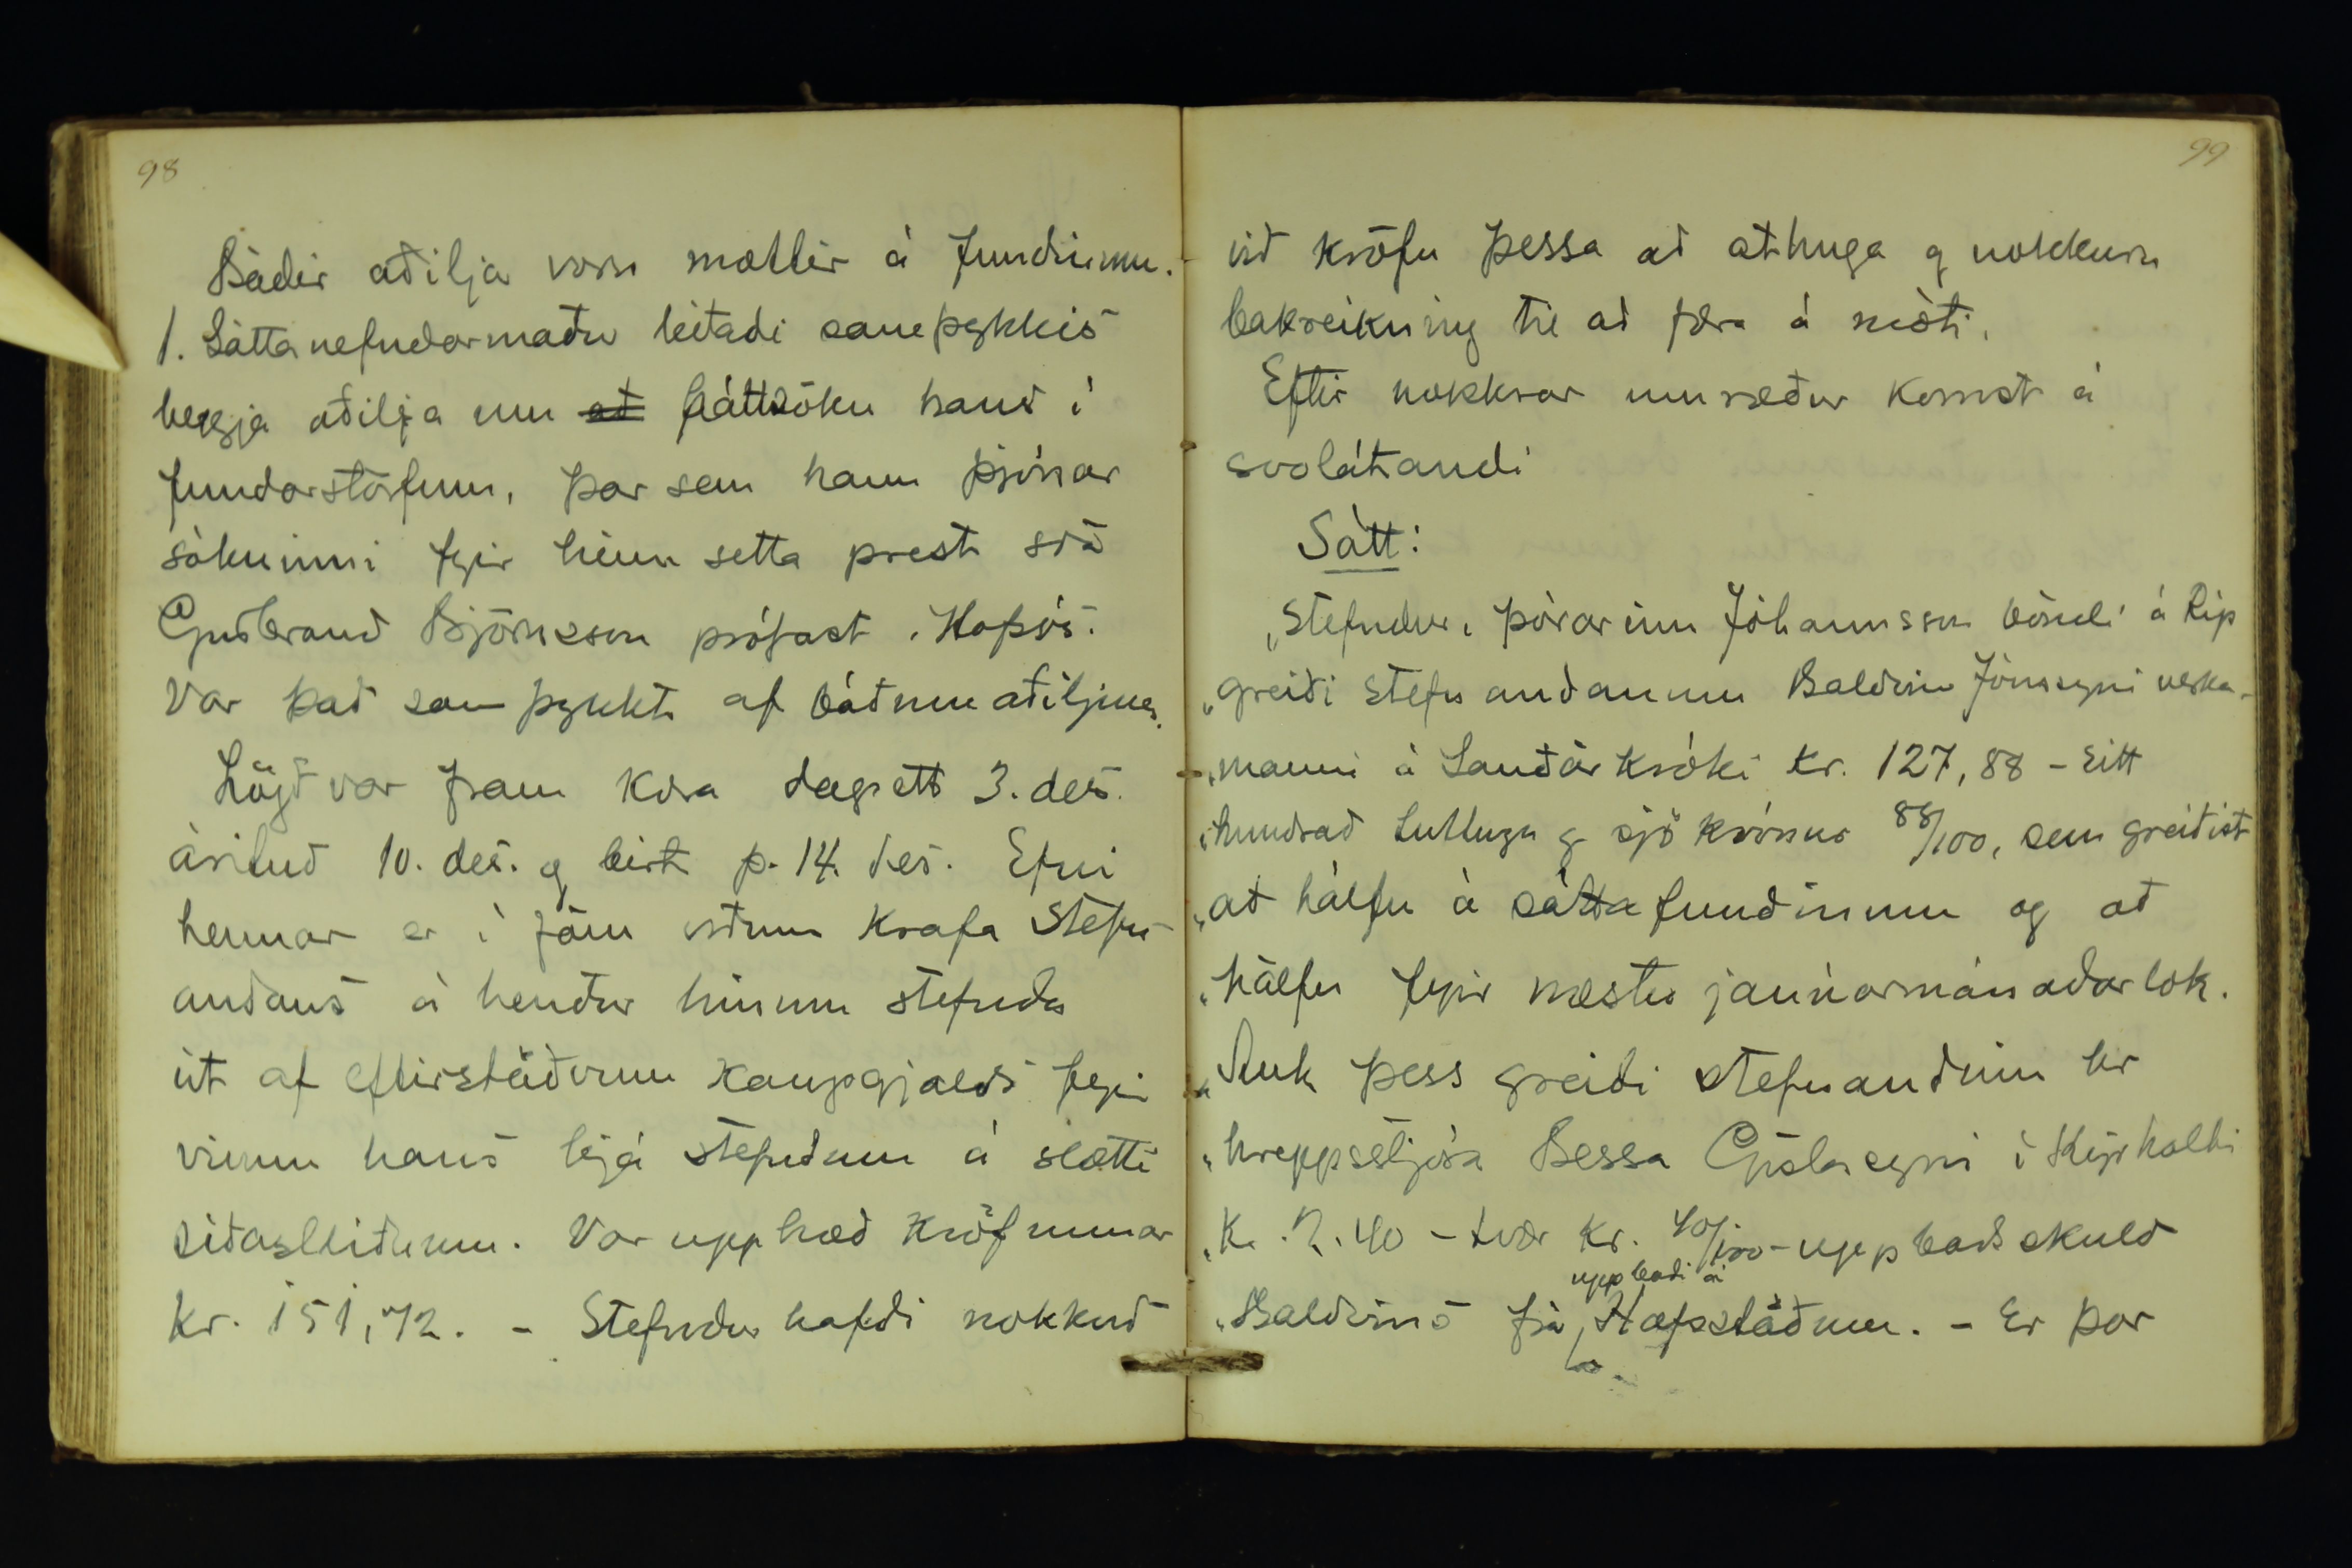 98
Báðir aðilja voru mættir á fundinum.
1. Sáttanefndarmaður leitaði samþykkis
beggja aðilja um að þátttöku hans í
fundarstörfum, þar sem hann þjónar
sókninni fyrir hinn setta prest sra
Guðbrand Björnsson prófast í Hofsós.
Var það samþykkt af báðum aðiljum.
Lögð var fram kæra dagsett 3. des.
árituð 10. des. og birt þ. 14. des. Efni
hennar er í fám orðum krafa Stefn-
andans á hendur hinum stefnda
út af eftirstöðvum kaupgjalds fyrir
vinnu hans hjá stefndum á slætti
síðastliðnum. Var upphæð kröfunnar
kr. 151,72. - Stefndur hafði nokkuð
99
við kröfu þessa að athuga og nokkurn
bakreikning til að færa á móti.
Eftir nokkrar umræður komst á
svolátandi
Sátt:
„Stefndur, Þórarinn Jóhannsson bóndi á Ríp
„greiði stefnandanum Baldvin Jónssyni verka-
„manni á Sauðárkróki kr. 127,88 - Eitt
„hundrað tuttugu og sjö krónur 88/100, sem greiðist
„að hálfu á sáttafundinum og að
„hálfu fyrir næstu janúarmánaðarlok.
„Auk þess greiði stefnandinn hr
„hreppstjóra Bessa Gíslasyni í Kýrholti
„Kr. 2.40 - tvær kr. 40/100 - uppboðsskuld
„Baldvins frá uppboði á Hofsstöðum. - Er þar